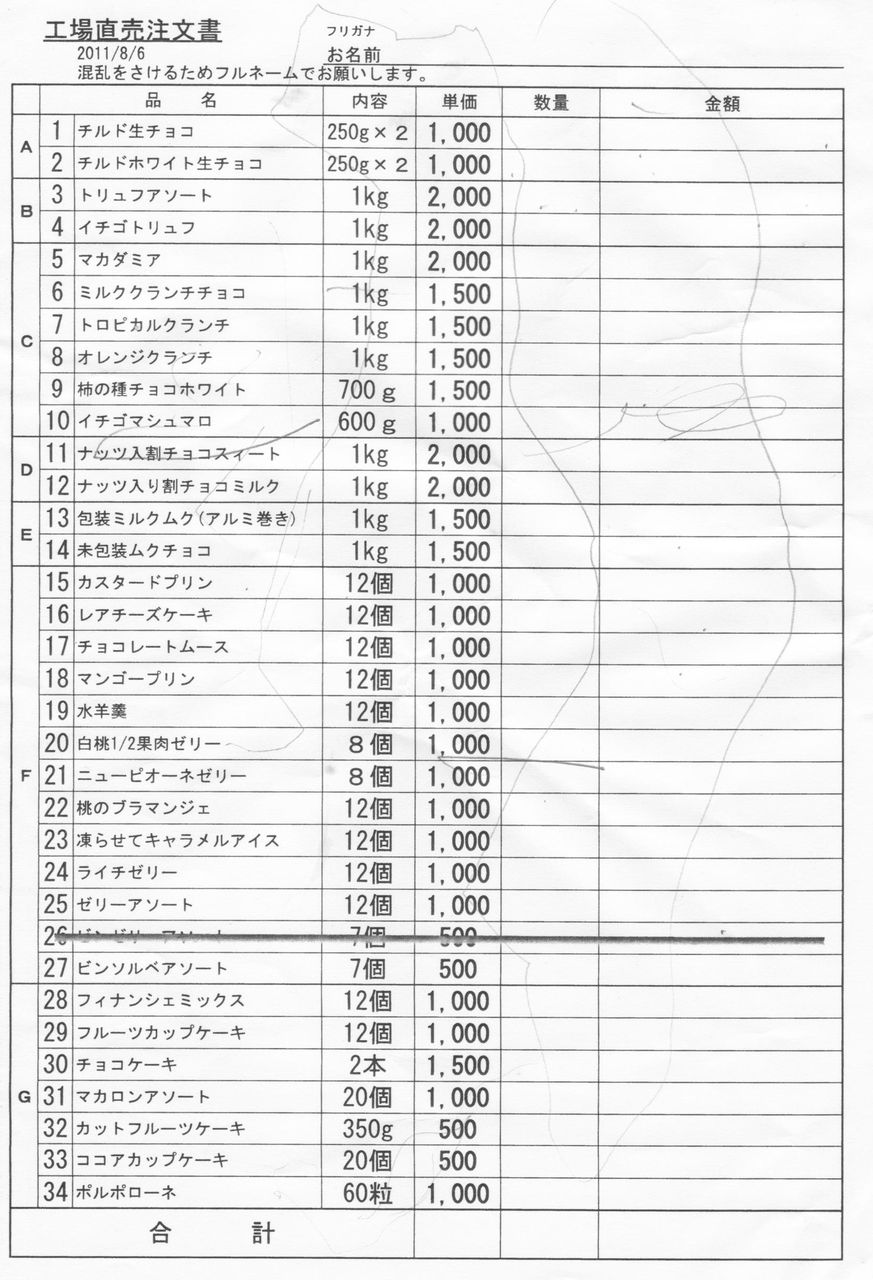 工場直売注文書
フリガナ
2011/8/6
お名前
混乱をさけるためフルネームでお願いします。
品 名 内容 単価 数量 金額
A
1 チルド生チョコ 250g×2 1,000
2 チルドホワイト生チョコ 250g×2 1,000
B
3 トリュフアソート 1kg 2,000
4 イチゴトリュフ 1kg 2,000
C
5 マカダミア 1kg 2,000
6 ミルククランチチョコ 1kg 1,500
7 トロピカルクランチ 1kg 1,500
8 オレンジクランチ 1kg 1,500
9 柿の種チョコホワイト 700g 1,500
10 イチゴマシュマロ 600g 1,000
D
11 ナッツ入割チョコスィート 1kg 2,000
12 ナッツ入り割チョコミルク 1kg 2,000
E
13 包装ミルクムク(アルミ巻き) 1kg 1,500
14 未包装ムクチョコ 1kg 1,500
F
15 カスタードプリン 12個 1,000
16 レアチーズケーキ 12個 1,000
17 チョコレートムース 12個 1,000
18 マンゴープリン 12個 1,000
19 水羊羹 12個 1,000
20 白桃1/2果肉ゼリー 8個 1,000
21 ニューピオーネゼリー 8個 1,000
22 桃のブラマンジェ 12個 1,000
23 凍らせてキャラメルアイス 12個 1,000
24 ライチゼリー 12個 1,000
25 ゼリーアソート 12個 1,000
26 ビンゼリーアソート 7個 500
27 ビンソルベアソート 7個 500
G
28 フィナンシェミックス 12個 1,000
29 フルーツカップケーキ 12個 1,000
30 チョコケーキ 2本 1,500
31 マカロンアソート 20個 1,000
32 カットフルーツケーキ 350g 500
33 ココアカップケーキ 20個 500
34 ポルポローネ 60粒 1,000
合 計